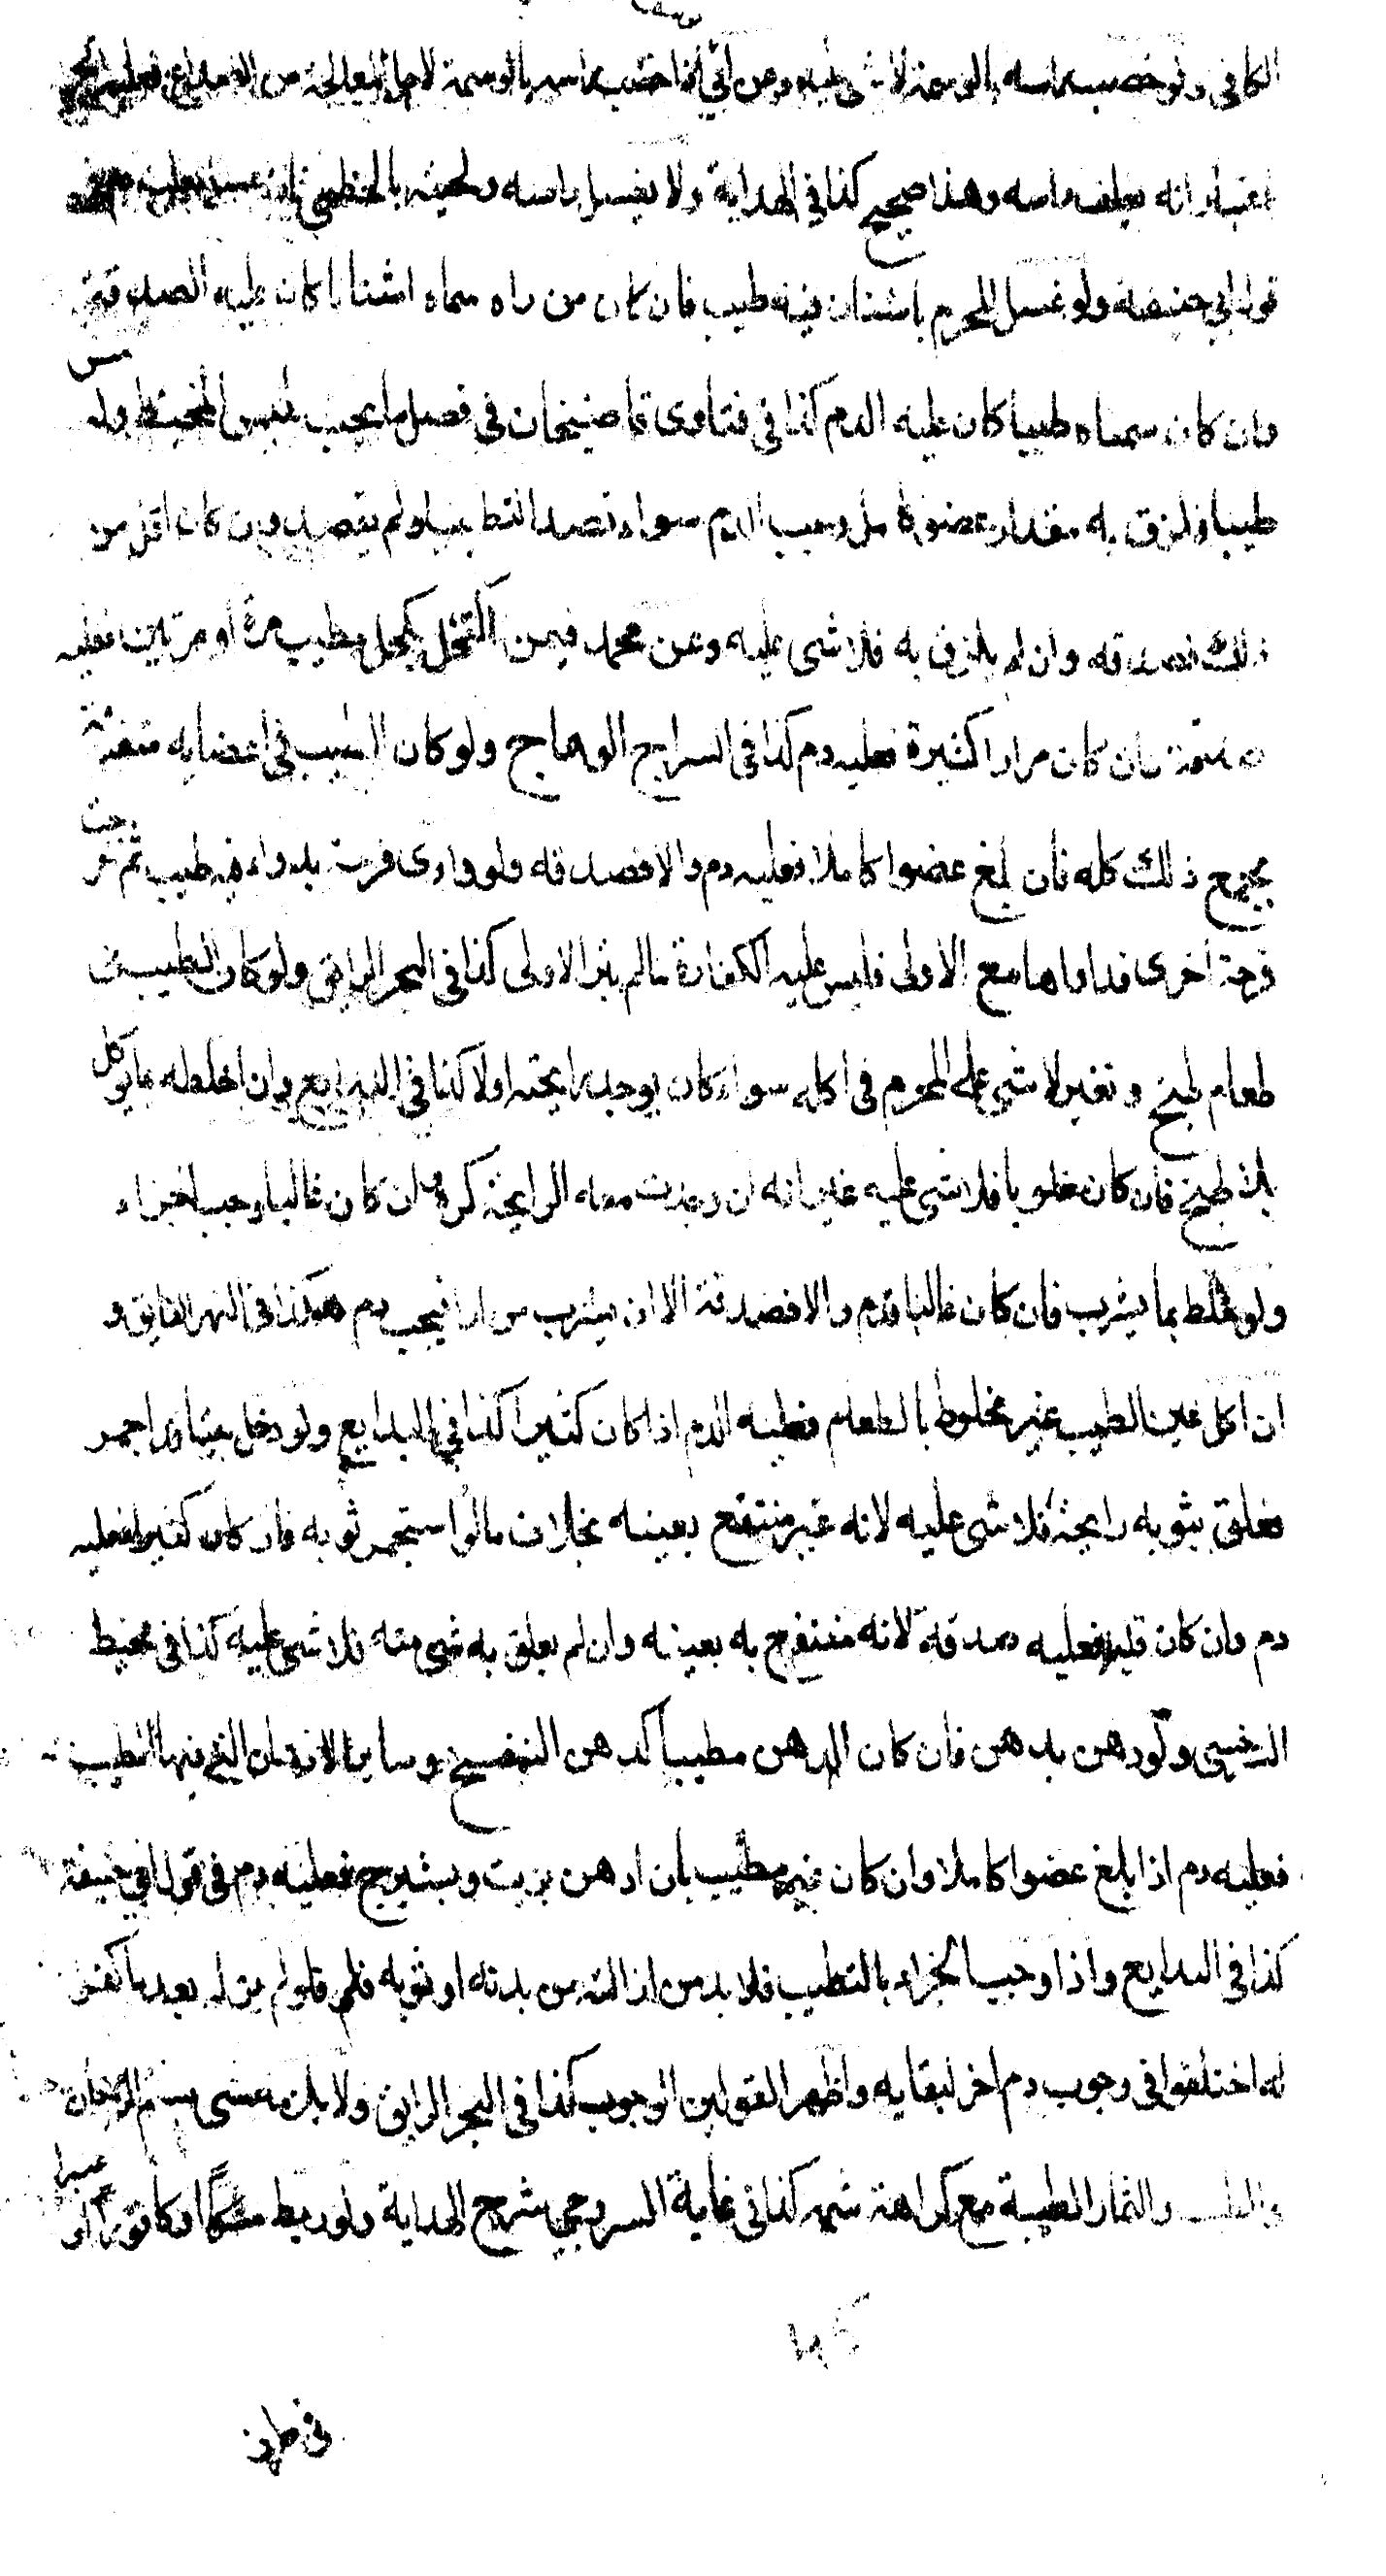 الكافي ولو خضب راسه بالوسمة لا شي عليه وعن ابي اذا خضب راسه بالوسمة لاجل المعالجة من الصداع فعليه الجزا
باعتبار انه يغلف راسه وهذا صحيح كذا في الهداية ولا يغسل راسه ولحيته بالخطمي فان غسل فعليه دم في
قول ابي حنيفة ولو غسل المحرم باشنان فيه طيب فان كان من راه سماه اشنانا كان عليه الصدقة
وان كان سماه طيبا كان عليه الدم كذا في فتاوى قاضيخان في فصل ما يجب بلبس المخيط ولو مس
طيبا فلزق به مقدار عضو كامل وجب الدم سواء قصد التطيب او لم يقصد وان كان اقل من
ذلك فصدقة وان لم يلزق به فلا شى عليه وعن محمد فيمن اكتحل بكحل مطيب مرة او مرتين فعليه
صدقة فان كان مرارا كثيرة فعليه دم كذا في السراج الوهاج ولو كان الطيب في اعضايه متفرقة
يجمع ذلك كله فان بلغ عضوا كاملا فعليه دم والا فصدقة ولو داوى قرحة بدواء فيه طيب ثم خرجت
قرحة اخرى فداواها مع الاولى فليس عليه الكفارة ما لم يبرا الاولى كذا في البحر الرايق ولو كان الطيب في
طعام طبخ وتغير لا شى على المحرم في اكله سواء كان يوجد رايحته او لا كذا في البدايع وان خلطه بما يوكل
بلا طبخ فان كان مغلوبا فلا شى عليه غير انه ان وجدت معه الرايحة كره وان كان غالبا وجب الجزاء
ولو خلط بما يشرب فان كان غالبا فدم والا فصدقة الا ان يشرب مرارا فيجب دم هكذا في النهر الفايق و
ان اكل عين الطيب غير مخلوط بالطعام فعليه الدم اذا كان كثيرا كذا في البدايع ولو دخل بيتا قد اجمر
فعلق بثوبه رايحة فلا شى عليه لانه غير منتفع بعينه بخلاف ما لو استجمر ثوبه فان كان كثيرا فعليه
دم وان كان قليلا فعليه صدقة لانه منتفع به بعينه وان لم يعلق به شي منه فلا شى عليه كذا في محيط
السرخسي ولو دهن بدهن فان كان الدهن مطيبا كدهن البنفسج وساير الادهان التي فيها الطيب
فعليه دم اذا بلغ عضوا كاملا وان كان غير مطيب بان ادهن بزيت وبشيرج فعليه دم في قول ابي حنيفة
كذا في البدايع واذا وجب الجزاء بالتطيب فلا بد من ازالته من بدنه او ثوبه فلو لم يزله بعد ما كفر
له اختلفوا في وجوب دم اخر لبقايه واظهر القولين الوجوب كذا في البحر الرايق ولا يلزمه شى بشم الريحان
والطيب والثمار الطيبة مع كراهة شمه كذا في غاية السروجي شرح الهداية ولو ربط مسكا او كافورا او عنبرا